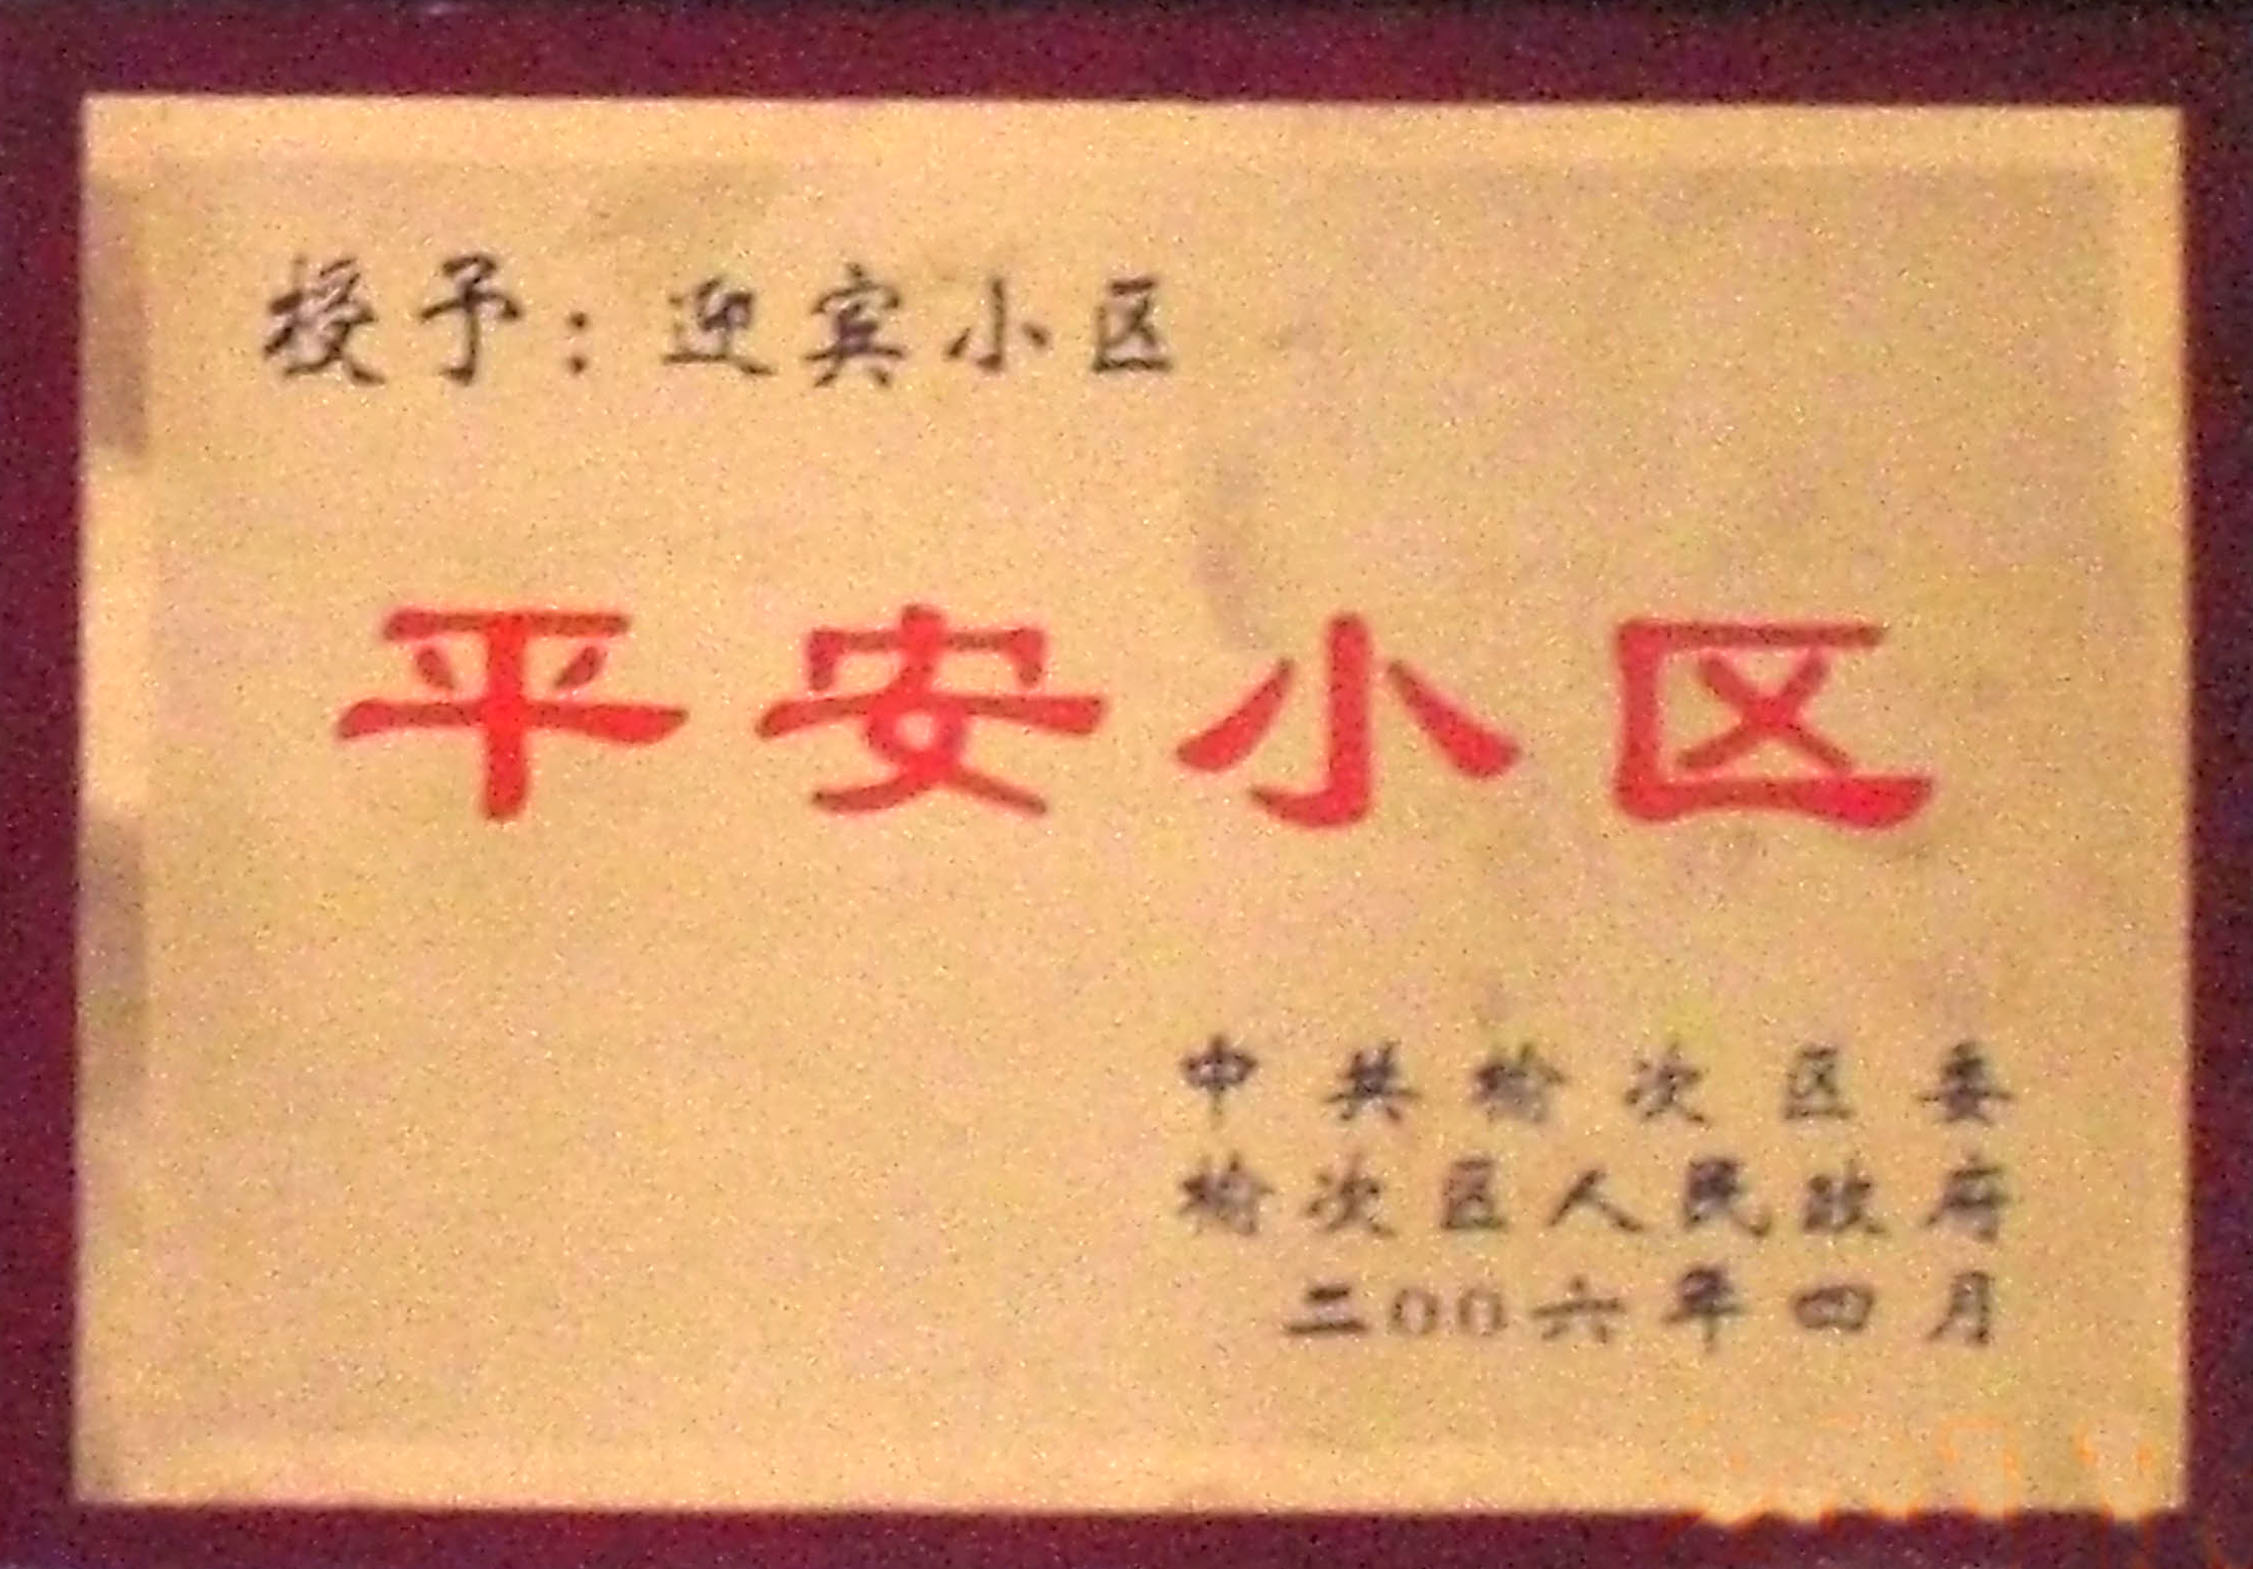 授予：迎宾小区
平安小区
中共榆次区委
榆次区人民政府
二00六年四月